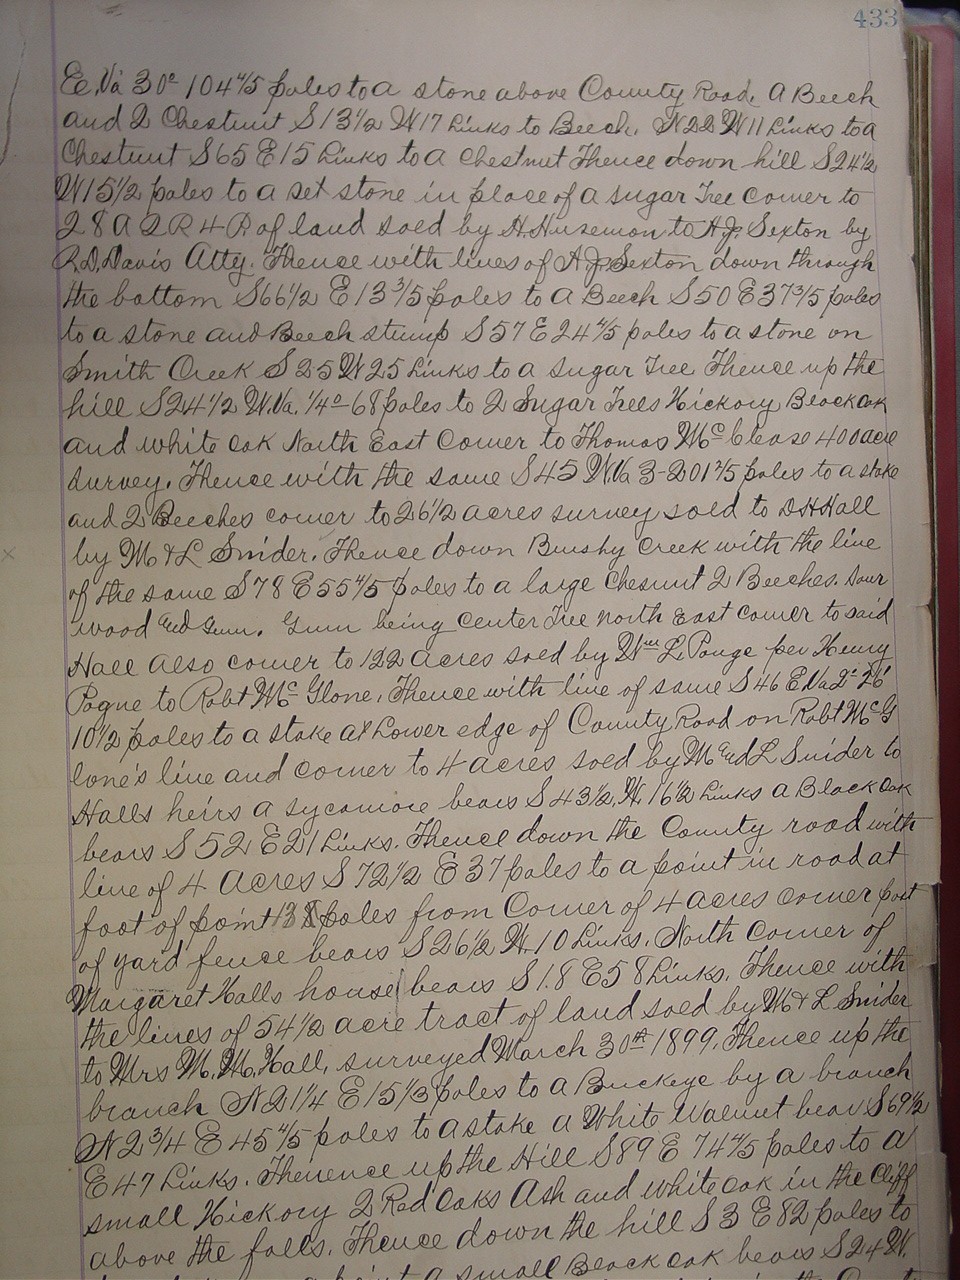 433
E. Va 3º 104 4/5 poles to a stone above County Road, A Beech
and 2 Chestnut S 13 1/2 W 17 Links to Beech, N 22 W 11 Links to a
Chestnut S 65 E 15 Links to a chestnut Thence down hill S 24 1/2
W 15 1/2 poles to a set stone in place of a sugar Tree corner to
28 A 2 R 4 P of land sold by H. Huseman to A.J. Sexton by
R.D. Davis Atty. Thence with lines of A.J. Sexton down through
the bottom S 66 1/2 E 13 3/5 poles to a Beech S 50 E 37 3/5 poles
to a stone and Beech stump S 57 E 24 4/5 poles to a stone on
Smith Creek S 25 W 25 Links to a sugar Tree Thence up the
hill S 24 1/2 W. Va. 1/4º 68 poles to 2 Sugar Trees Hickory Black oak
and white oak North East Corner to Thomas Mc Clease 400 acre
survey. Thence with the same S 45 W. Va 3-201 2/5 poles to a stake
and 2 Beeches corner to 26 1/2 acres survey sold to D H Hall
by M & L Snider. Thence down Brushy Creek with the line
of the same S 78 E 55 4/5 poles to a large Chesnut 2 Beeches. Sour
wood and Gum. Gum being Center Tree north East corner to said
Hall also corner to 122 acres sold by Wm L Pouge per Henry
Pogue to Robt Mc Glone. Thence with line of same S 46 E. Va 2º 26'
10 1/2 poles to a stake at Lower edge of County Road on Robt Mc G
lone's line and corner to 4 acres sold by M and L Snider to
Halls heirs a sycamore bears S 43 1/2 W. 16 1/2 Links a Black oak
bears S 52 E 21 Links. Thence down the County road with
line of 4 Acres S 72 1/2 E 37 poles to a point in road at
foot of point 38 poles from Corner of 4 acres corner post
of yard fence bears S 26 1/2 W. 10 Links. North Corner of
Margaret Halls house bears S 18 E 58 Links. Thence with
the lines of 54 1/2 acre tract of land sold by M & L Snider
to Mrs M. M. Hall, surveyed March 30th 1899. Thence up the
branch N 21 1/4 E 15 1/3 poles to a Buckeye by a branch
N 2 3/4 E 45 4/5 poles to a stake a White Walnut bears S 69 1/2
E 47 Links. Therence up the Hill S 89 E 74 4/5 poles to a
small Hickory 2 Red Oaks Ash and white oak in the Cliff
above the falls. Thence down the hill S 3 E 82 poles to
a small Black oak bears S 24 W.